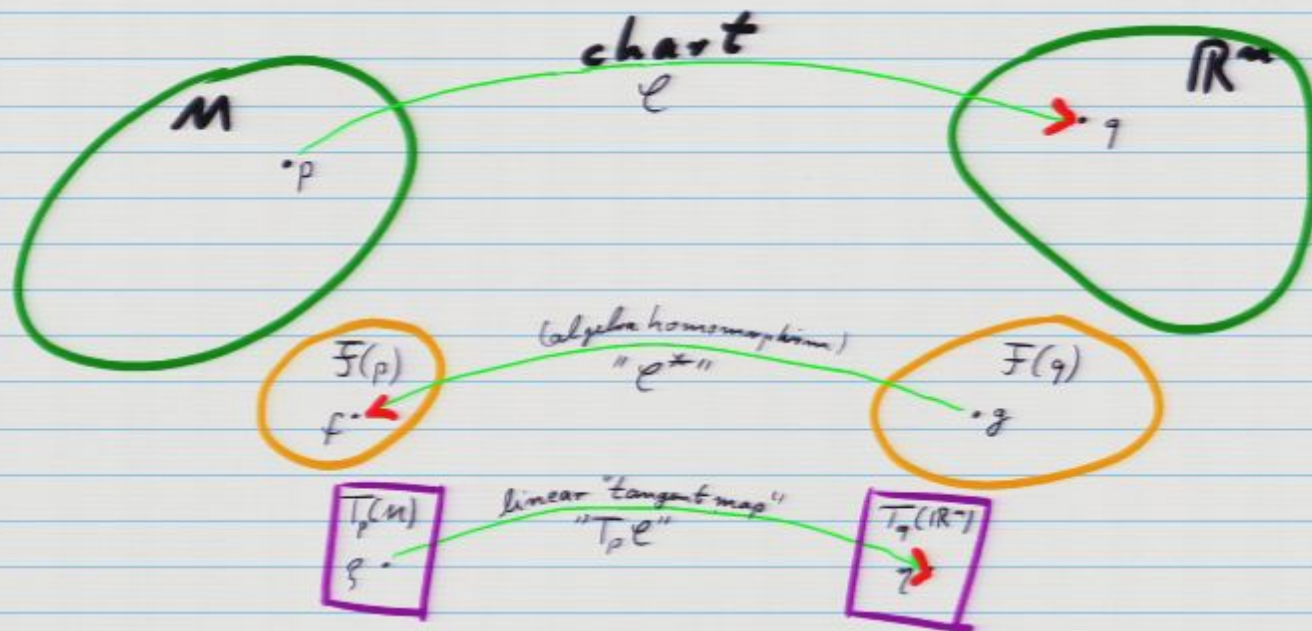 chart
φ
M
ℝⁿ
•p
• q
(algebra homomorphism)
"φ*"
F(p)
f •
F(q)
• g
linear "tangent map"
"Tₚφ"
Tₚ(M)
ξ •
T_q(ℝⁿ)
η